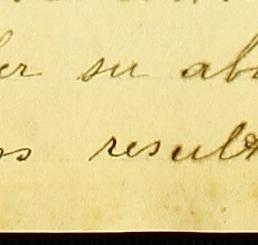 er su ab
os result